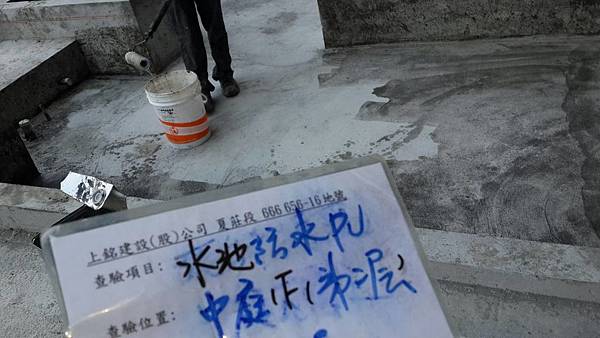 上銘建設(股)公司 夏莊段 666 656-16地號
查驗項目: 水池防水PU
查驗位置: 中庭1F(第一層)